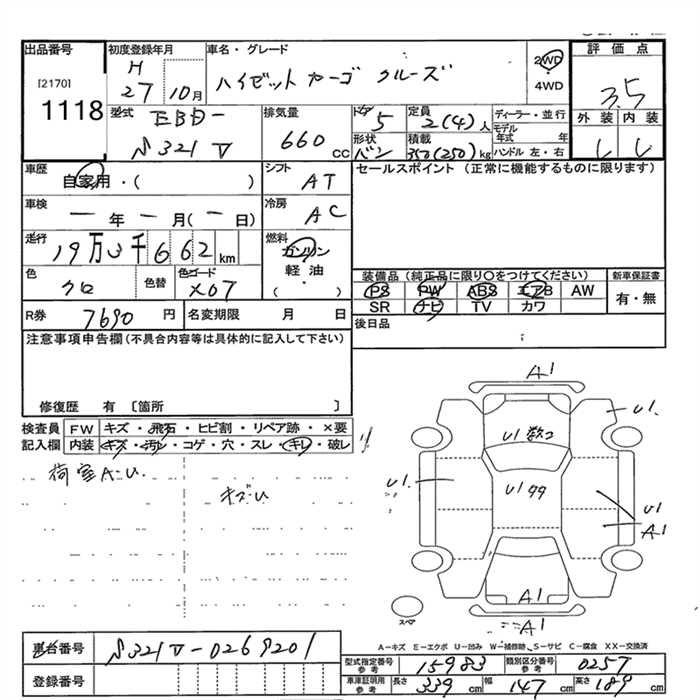 出品番号 初度登録年月 車名・グレード 2WD 評価点
[2170] H ハイゼットカーゴ クルーズ 4WD 3.5
1118 27 10月
型式 EBD- 排気量 ドア 5 定員 2(4)人 ディーラー・並行 外装 内装
モデル年式 年
S321V 660cc 形状 バン 積載 350(250)kg ハンドル 左・右
車歴 自家用・( ) シフト AT セールスポイント (正常に機能するものに限ります)
車検 一年 一月(一日) 冷房 AC
走行 19万3千662km 燃料 ガソリン
軽油
( ・ )
色 クロ 色替 色コード X07 装備品(純正品に限り○をつけてください) 新車保証書
PS PW ABS エアB AW 有・無
SR ナビ TV カワ
R券 7690円 名変期限 月 日 後日品
注意事項申告欄(不具合内容等は具体的に記入して下さい)
修復歴 有 〔箇所 〕
検査員 FW キズ・飛石・ヒビ割・リペア跡・×要
記入欄 内装 キズ・汚れ・コゲ・穴・スレ・キレ・破レ
荷室A・U.
キズU
A1
U1.
U1数2
U1.
U1 99
U1
A1
A1
A1
スペア
A-キズ E-エクボ U-凹み W-補修跡 S-サビ C-腐食 XX-交換済
車台番号 S321V-0269201 型式指定番号 参考 15983 類別区分番号 参考 0257
登録番号 車庫証明用 参考 長さ 339cm 幅 147cm 高さ 189cm